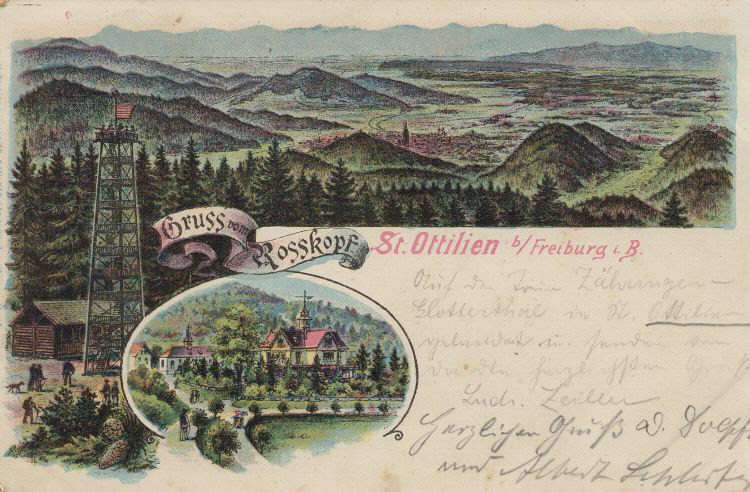 Gruss vom
Rosskopf
St. Ottilien b/Freiburg i. B.
Auf der Tour Zähringen-
Glotterthal in St. Ottilien
gelandet u. senden von
herzlichsten Grüße
Ludw. Zeiller
Herzlichen Gruß
und Albert